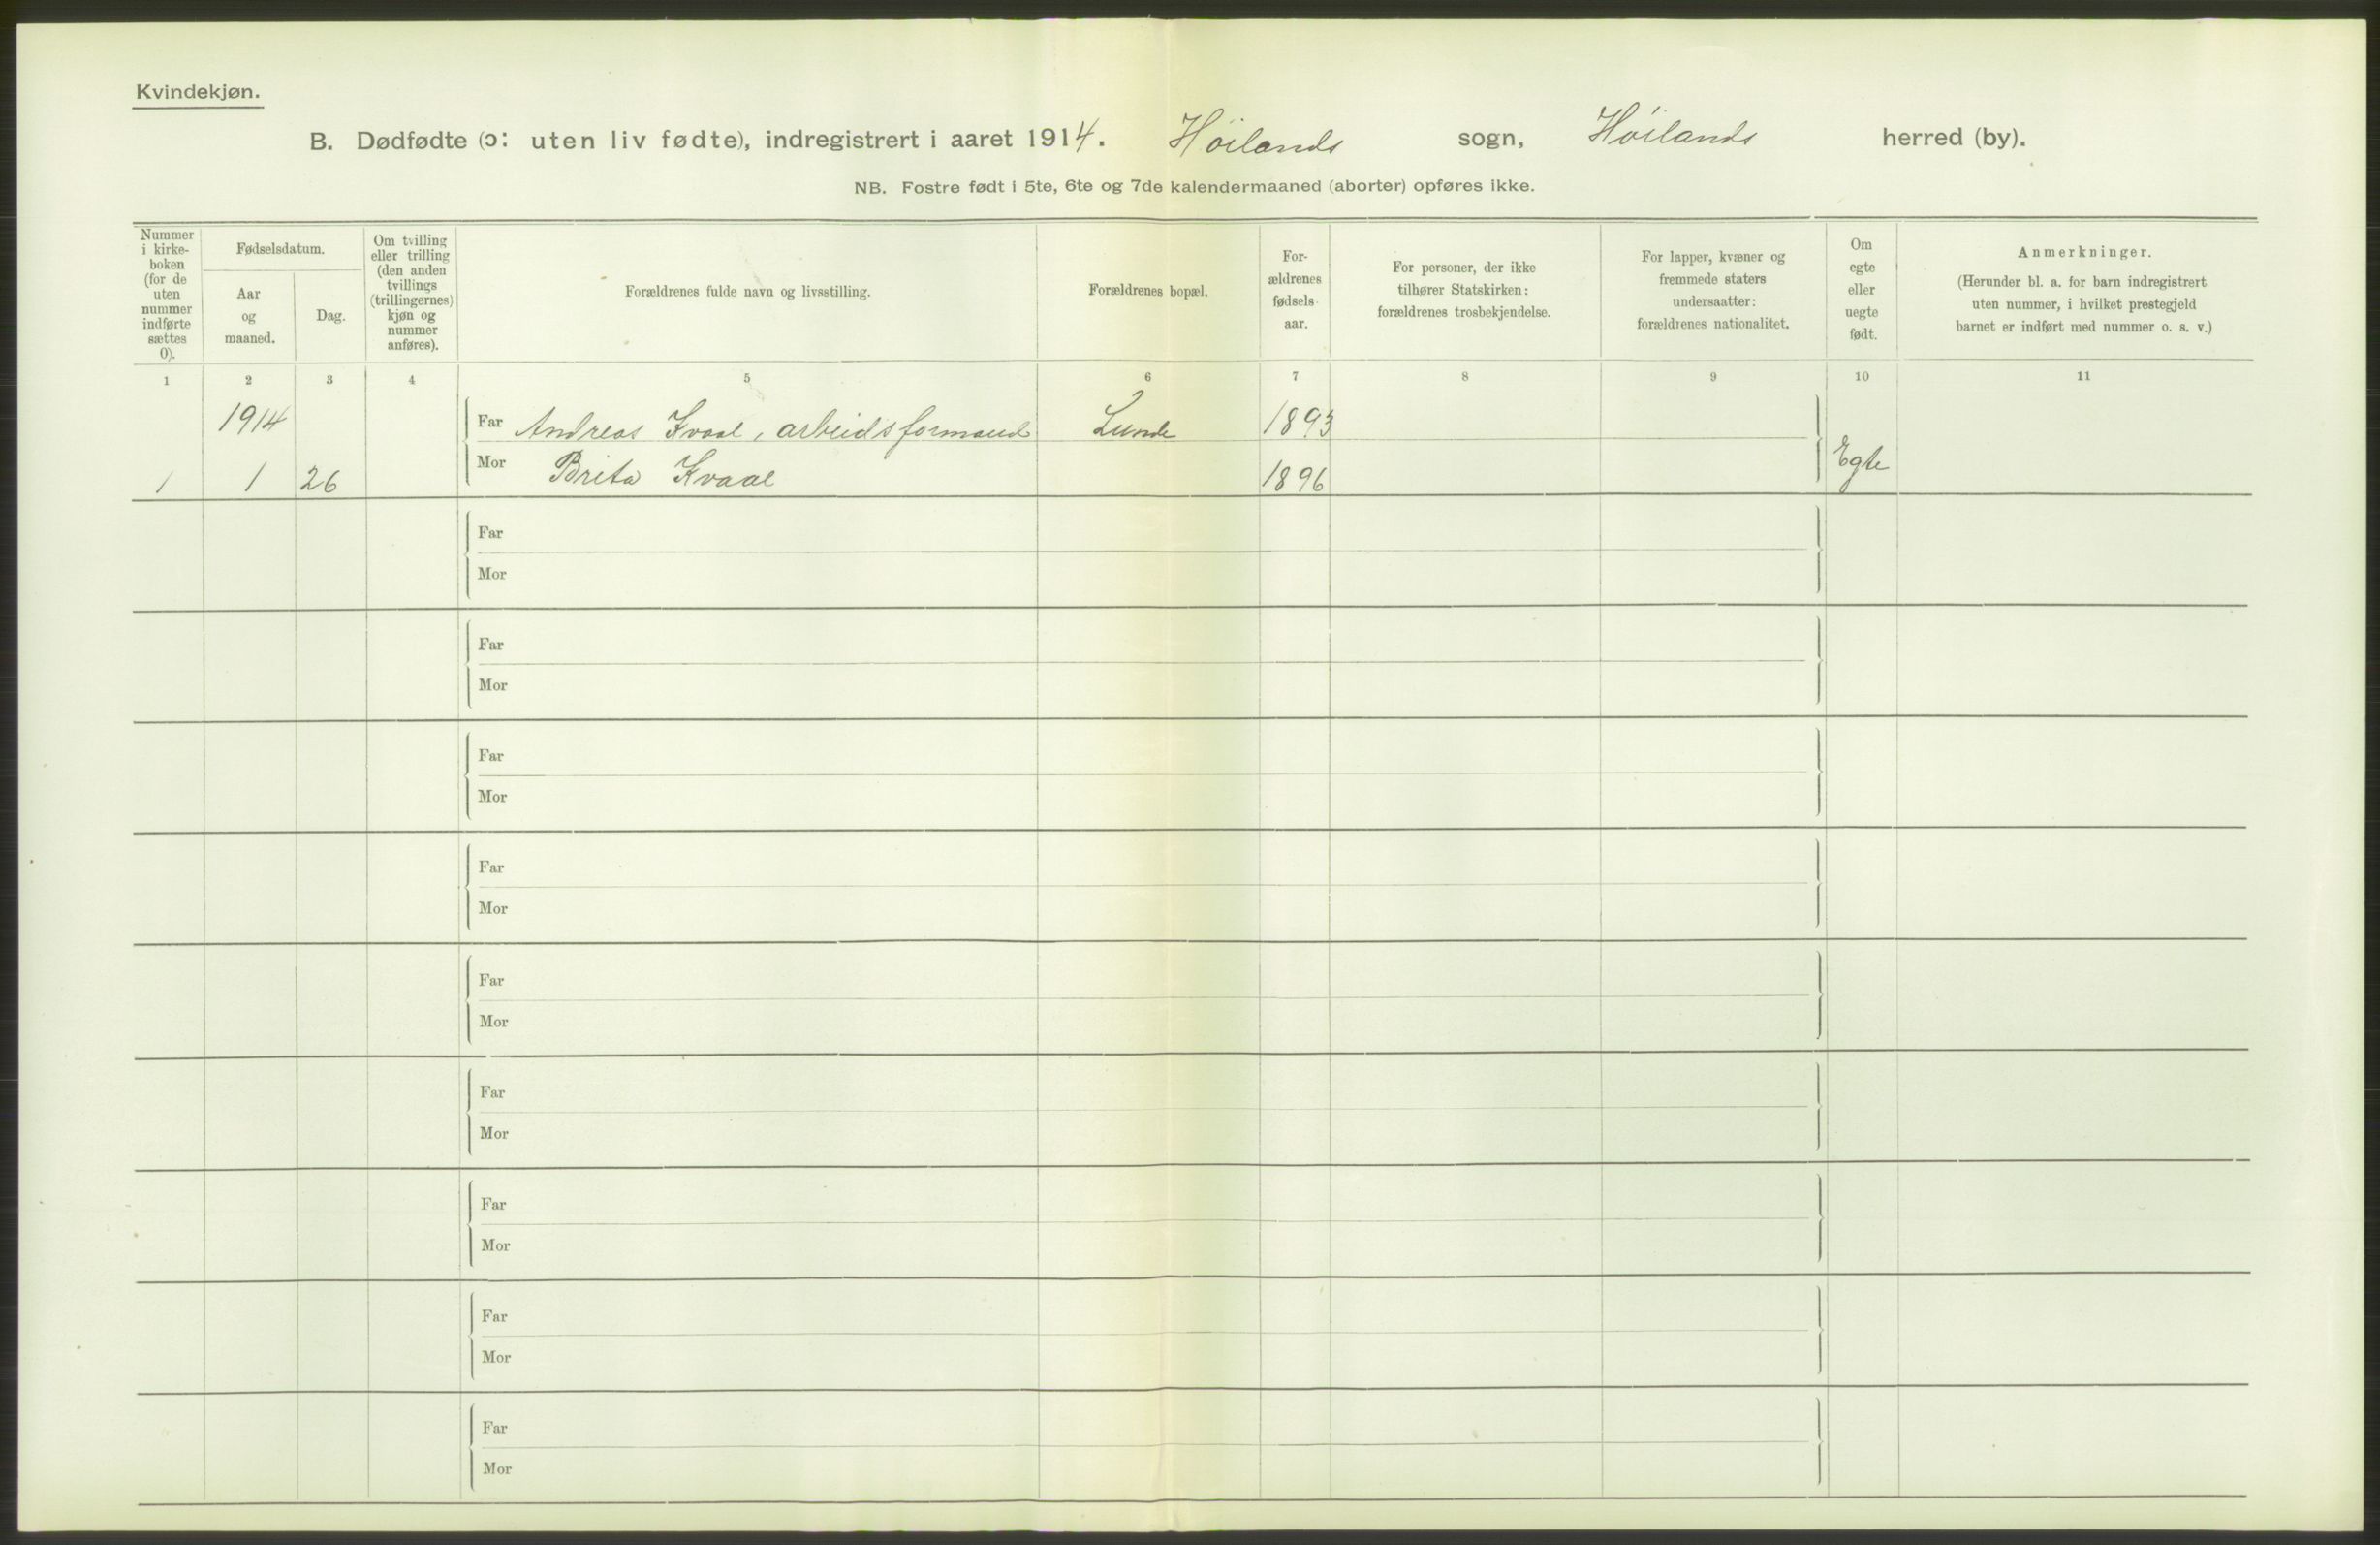 Kvindekjøn.
B. Dødfødte (ɔ: uten liv fødte), indregistrert i aaret 1914. Høilands sogn, Høilands herred (by).
NB. Fostre født i 5te, 6te og 7de kalendermaaned (aborter) opføres ikke.
Nummer
i kirke-
boken
(for de
uten
nummer
indførte
sættes
0).
Fødselsdatum.
Aar
og
maaned.
Dag.
Om tvilling
eller trilling
(den anden
tvillings
(trillingernes)
kjøn og
nummer
anføres).
Forældrenes fulde navn og livsstilling.
Forældrenes bopæl.
For-
ældrenes
fødsels-
aar.
For personer, der ikke
tilhører Statskirken:
forældrenes trosbekjendelse.
For lapper, kvæner og
fremmede staters
undersaatter:
forældrenes nationalitet.
Om
egte
eller
uegte
født.
Anmerkninger.
(Herunder bl. a. for barn indregistrert
uten nummer, i hvilket prestegjeld
barnet er indført med nummer o. s. v.)
1 2 3 4 5 6 7 8 9 10 11
1914 Far Andreas Kvaal, arbeidsformand Lunde 1893
1 1 26 Mor Brita Kvaal 1896 Egte
Far
Mor
Far
Mor
Far
Mor
Far
Mor
Far
Mor
Far
Mor
Far
Mor
Far
Mor
Far
Mor